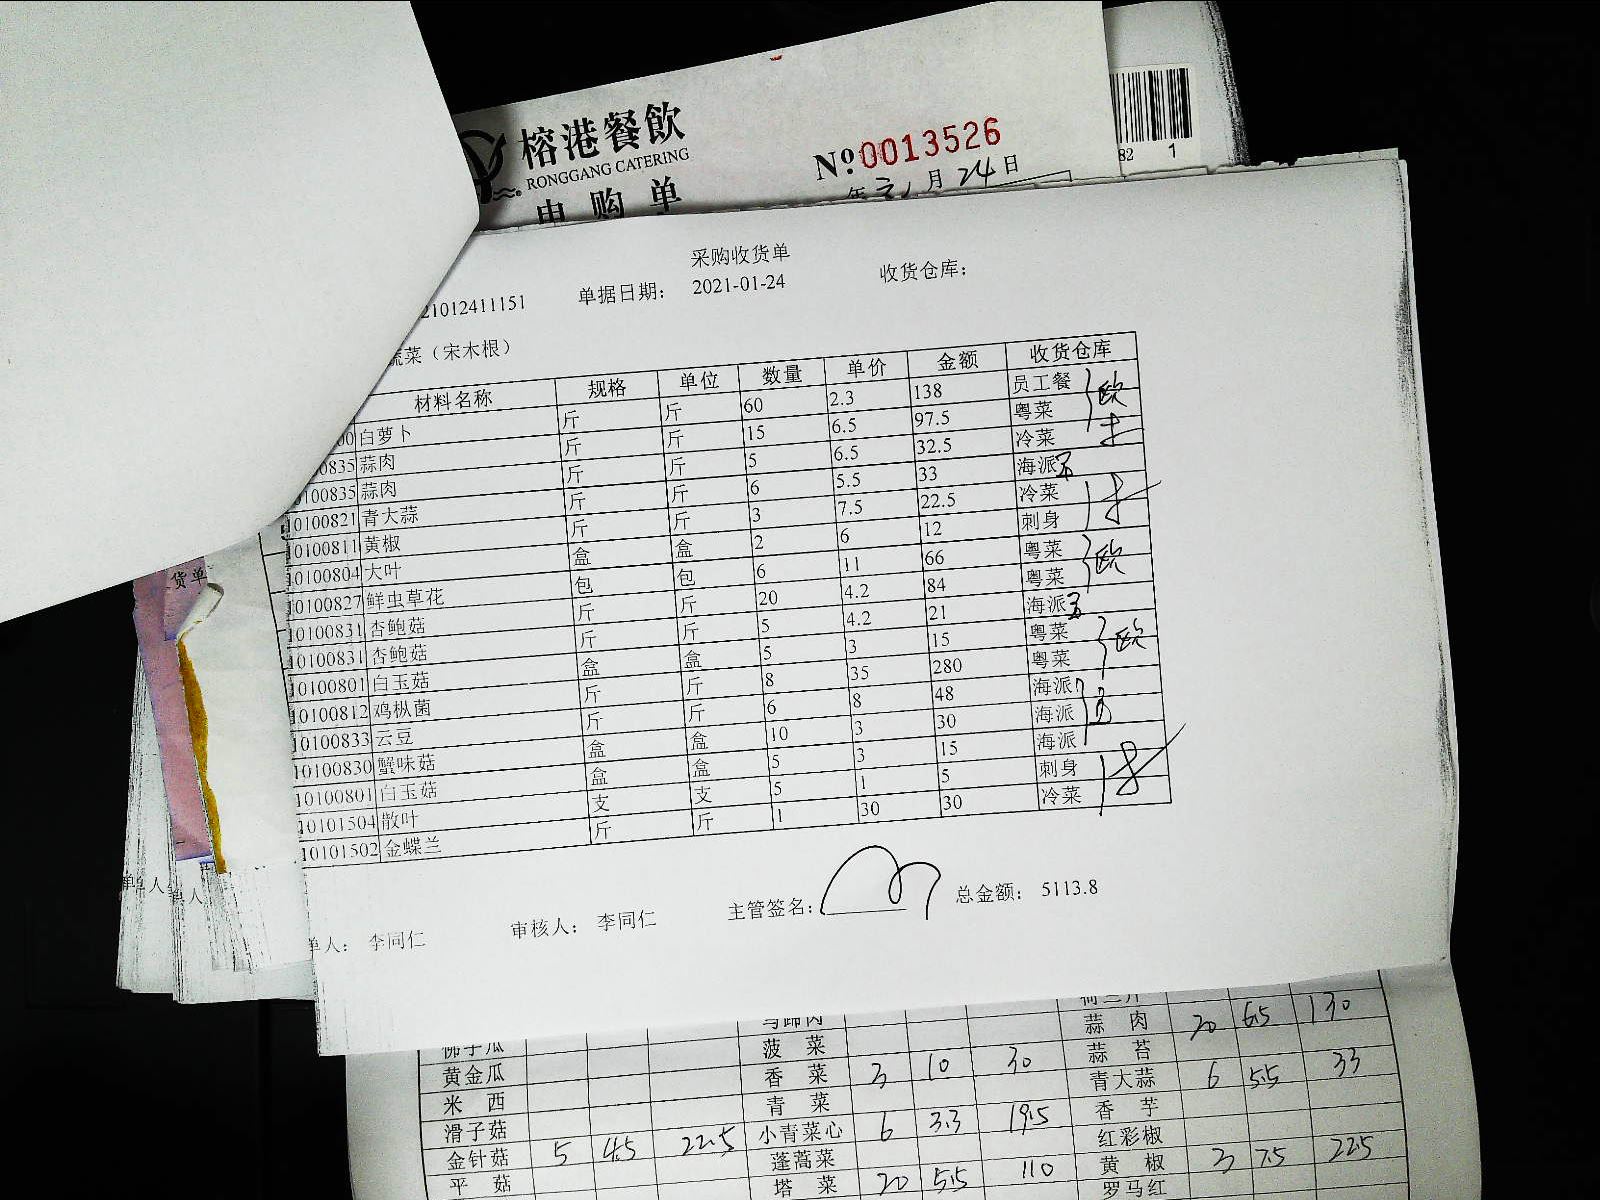 榕港餐飲
RONGGANG CATERING
申购单
No.0013526
年 月 24 日
82 1
采购收货单
21012411151 单据日期： 2021-01-24 收货仓库：
蔬菜（宋木根）
材料名称 规格 单位 数量 单价 金额 收货仓库
00 白萝卜 斤 斤 60 2.3 138 员工餐 欧
0835 蒜肉 斤 斤 15 6.5 97.5 粤菜
0100835 蒜肉 斤 斤 5 6.5 32.5 冷菜
10100821 青大蒜 斤 斤 6 5.5 33 海派
10100811 黄椒 斤 斤 3 7.5 22.5 冷菜
10100804 大叶 盒 盒 2 6 12 刺身
10100827 鲜虫草花 包 包 6 11 66 粤菜 欧
10100831 杏鲍菇 斤 斤 20 4.2 84 粤菜
10100831 杏鲍菇 斤 斤 5 4.2 21 海派
10100801 白玉菇 盒 盒 5 3 15 粤菜 欧
10100812 鸡枞菌 斤 斤 8 35 280 粤菜
10100833 云豆 斤 斤 6 8 48 海派
10100830 蟹味菇 盒 盒 10 3 30 海派
10100801 白玉菇 盒 盒 5 3 15 海派
10101504 散叶 支 支 5 1 5 刺身
10101502 金蝶兰 斤 斤 1 30 30 冷菜
单人： 李同仁 审核人： 李同仁 主管签名： 总金额： 5113.8
货单
单人
人
马蹄肉 荷兰斤
佛手瓜 菠菜 蒜肉 20 6.5 130
黄金瓜 香菜 3 10 30 蒜苔
米西 青菜 青大蒜 6 5.5 33
滑子菇 小青菜心 6 3.3 19.5 香芋
金针菇 5 4.5 22.5 蓬蒿菜 红彩椒
平菇 塔菜 20 5.5 110 黄椒 3 7.5 22.5
罗马红